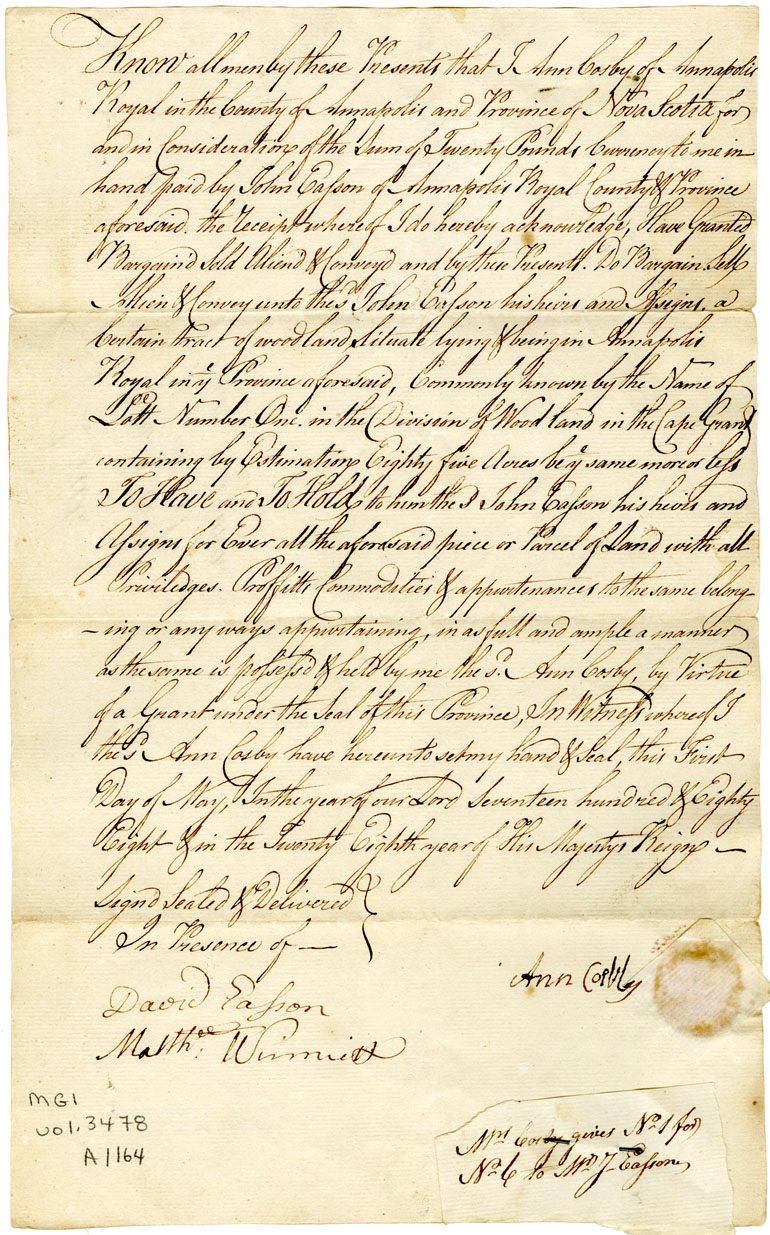 Know all men by these Presents that I Ann Cosby of Annapolis
Royal in the County of Annapolis and Province of Nova Scotia for
and in Consideration of the Sum of Twenty Pounds Currency to me in
hand paid by John Easson of Annapolis Royal County & Province
aforesaid. the receipt whereof I do hereby acknowledge, Have Granted
Bargain'd Sold Aliend & Convey'd and by these Presents. Do Bargain Sell
Alien & Convey unto the sd John Easson his heirs and Assigns. a
Certain tract of wood land Situate lying & being in Annapolis
Royal in ye Province aforesaid, Commonly known by the Name of
Lott Number One. in the Division of Wood land in the Cape Grant
containing by Estimation Eighty five Acres be ye same more or less
To Have and To Hold to him the sd John Easson his heirs and
Assigns for Ever all the aforesaid piece or Parcel of Land with all
Priviledges. Proffitts Commodities & appurtenances to the same belong-
-ing or any ways appurtaining, in as full and ample a manner
as the same is possess'd & held by me the sd. Ann Cosby, by Virtue
of a Grant under the Seal of this Province, In Witness whereof I
the sd Ann Cosby have hereunto set my hand & Seal, this First
Day of May, In the year of our Lord Seventeen hundred & Eighty
Eight & in the Twenty Eighth year of His Majestys Reign —
Signd Sealed & Delivered
In Presence of —
Ann Cosby
David Easson
Matthw. Winniett
MG1
vol. 3478
A1164
Mrs Cosby gives No 1 for
No 6 to Mr J Easson